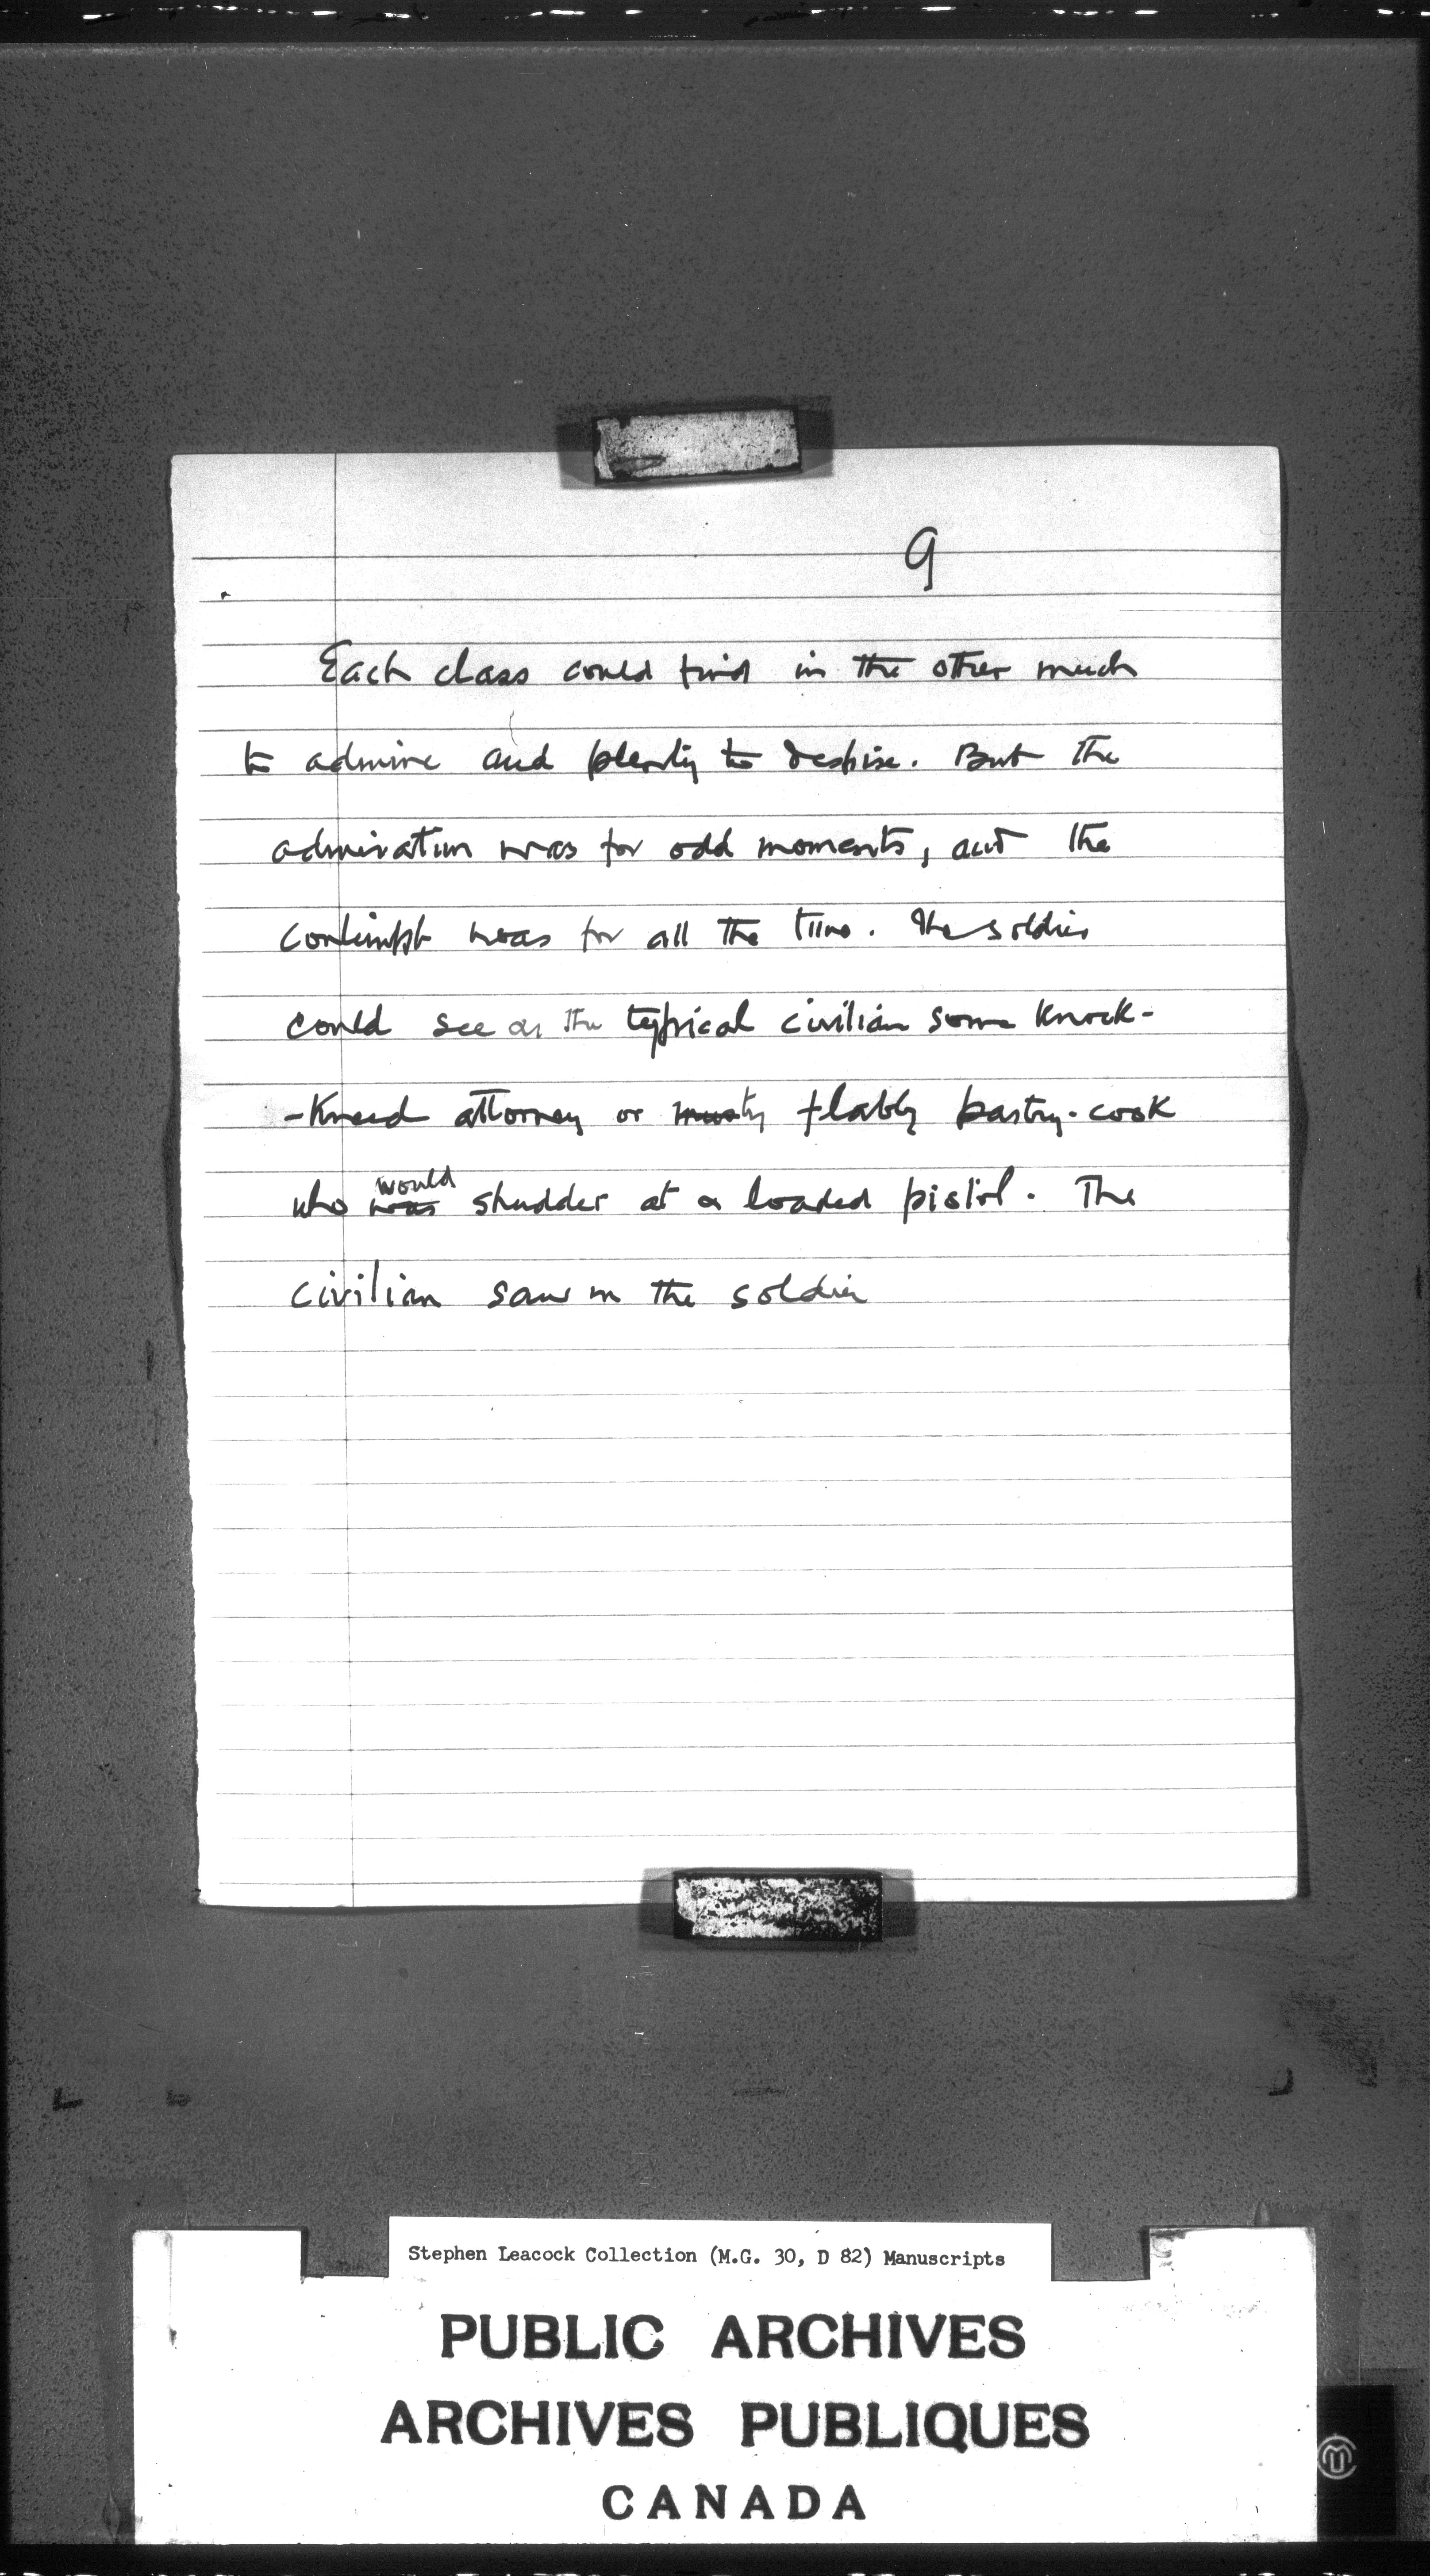 9
Each class could find in the other much
to admire and plenty to despise. But the
admiration was for odd moments, and the
contempt was for all the time. The soldier
could see as the typical civilian some knock-
-kneed attorney or musty flabby pastry-cook
who was would shudder at a loaded pistol. The
civilian saw in the soldier
Stephen Leacock Collection (M.G. 30, D 82) Manuscripts
PUBLIC ARCHIVES
ARCHIVES PUBLIQUES
CANADA